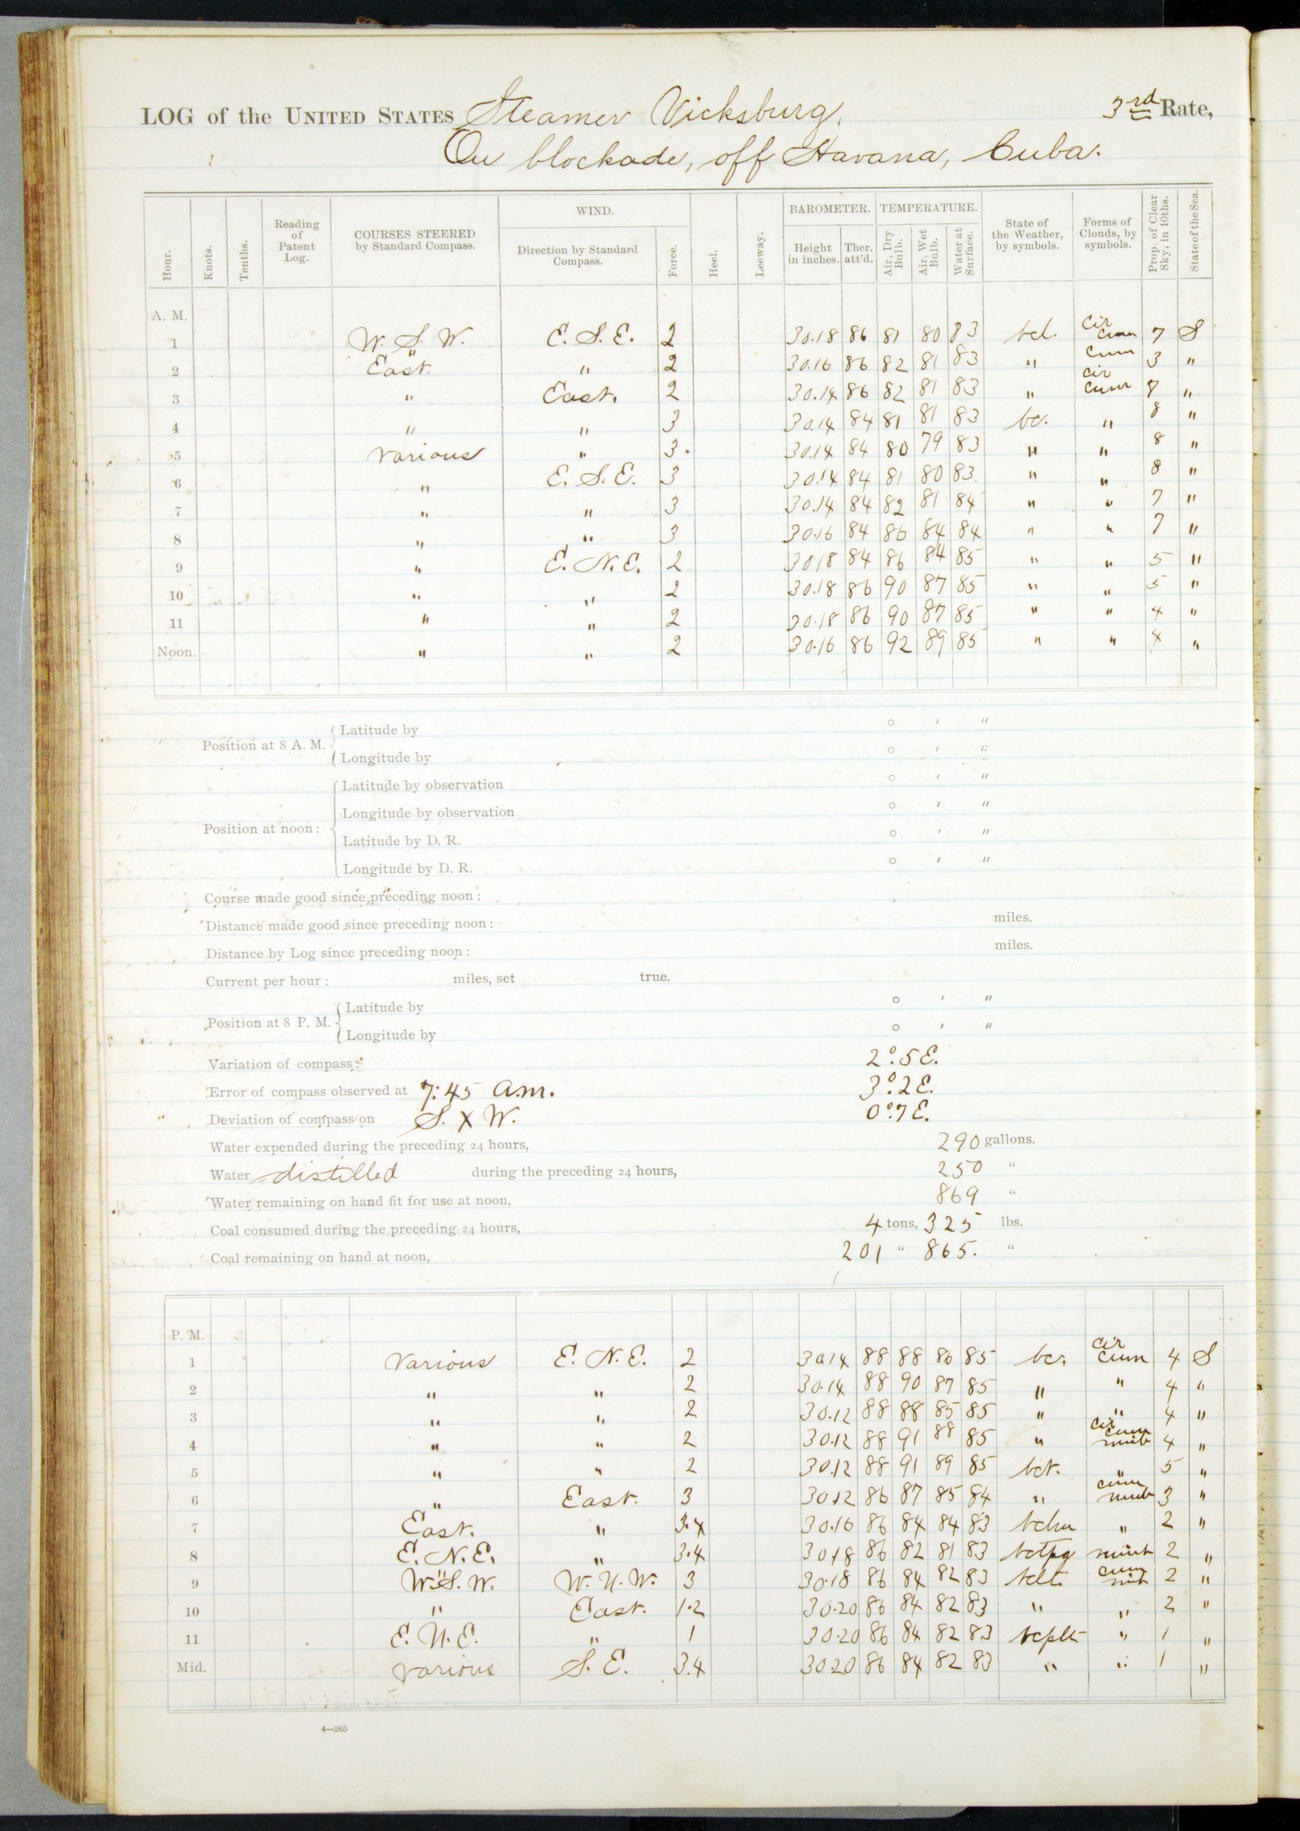 LOG of the UNITED STATES Steamer Vicksburg, 3rd Rate,
On blockade, off Havana, Cuba.
WIND. BAROMETER. TEMPERATURE.
Hour. Knots. Tenths. Reading of Patent Log. COURSES STEERED by Standard Compass. Direction by Standard Compass. Force. Heel. Leeway. Height in inches. Ther. att'd. Air, Dry Bulb. Air, Wet Bulb. Water at Surface. State of the Weather, by symbols. Forms of Clouds, by symbols. Prop. of Clear Sky, in 10ths. State of the Sea.
A. M.
1 W. S. W. E. S. E. 2 30.18 86 81 80 83 bcl. cir cum 7 S
2 East. " 2 30.16 86 82 81 83 " cum 3 "
3 " East. 2 30.14 86 82 81 83 " cir cum 8 "
4 " " 3 30.14 84 81 81 83 bc. " 8 "
5 various " 3. 30.14 84 80 79 83 " " 8 "
6 " E. S. E. 3 30.14 84 81 80 83 " " 8 "
7 " " 3 30.14 84 82 81 84 " " 7 "
8 " " 3 30.16 84 86 84 84 " " 7 "
9 " E. N. E. 2 30.18 84 86 84 85 " " 5 "
10 " " 2 30.18 86 90 87 85 " " 5 "
11 " " 2 30.18 86 90 87 85 " " 4 "
Noon. " " 2 30.16 86 92 89 85 " " 4 "
Position at 8 A. M. Latitude by ° ′ ″
Longitude by ° ′ ″
Position at noon: Latitude by observation ° ′ ″
Longitude by observation ° ′ ″
Latitude by D. R. ° ′ ″
Longitude by D. R. ° ′ ″
Course made good since preceding noon:
Distance made good since preceding noon: miles.
Distance by Log since preceding noon: miles.
Current per hour: miles, set true.
Position at 8 P. M. Latitude by ° ′ ″
Longitude by ° ′ ″
Variation of compass: 2°.5 E.
Error of compass observed at 7:45 a.m. 3°.2 E.
Deviation of compass on S. X W. 0°.7 E.
Water expended during the preceding 24 hours, 290 gallons.
Water distilled during the preceding 24 hours, 250 "
Water remaining on hand fit for use at noon, 869 "
Coal consumed during the preceding 24 hours, 4 tons, 325 lbs.
Coal remaining on hand at noon, 201 " 865. "
P. M.
1 various E. N. E. 2 30.14 88 88 86 85 bc. cir cum 4 S
2 " " 2 30.14 88 90 87 85 " " 4 "
3 " " 2 30.12 88 88 85 85 " " 4 "
4 " " 2 30.12 88 91 88 85 " cir cum nimb 4 "
5 " " 2 30.12 88 91 89 85 bct. " 5 "
6 " East. 3 30.12 86 87 85 84 " cum nimb 3 "
7 East. " 3.4 30.16 86 84 84 83 " 2 "
8 E. N. E. " 3.4 30.18 86 82 81 83 bctpq 2 "
9 W. S. W. W. N. W. 3 30.18 86 84 82 83 cum 2 "
10 " East. 1.2 30.20 86 84 82 83 " " 2 "
11 E. N. E. " 1 30.20 86 84 82 83 bcplt " 1 "
Mid. various S. E. 3.4 30.20 86 84 82 83 " " 1 "
4—265